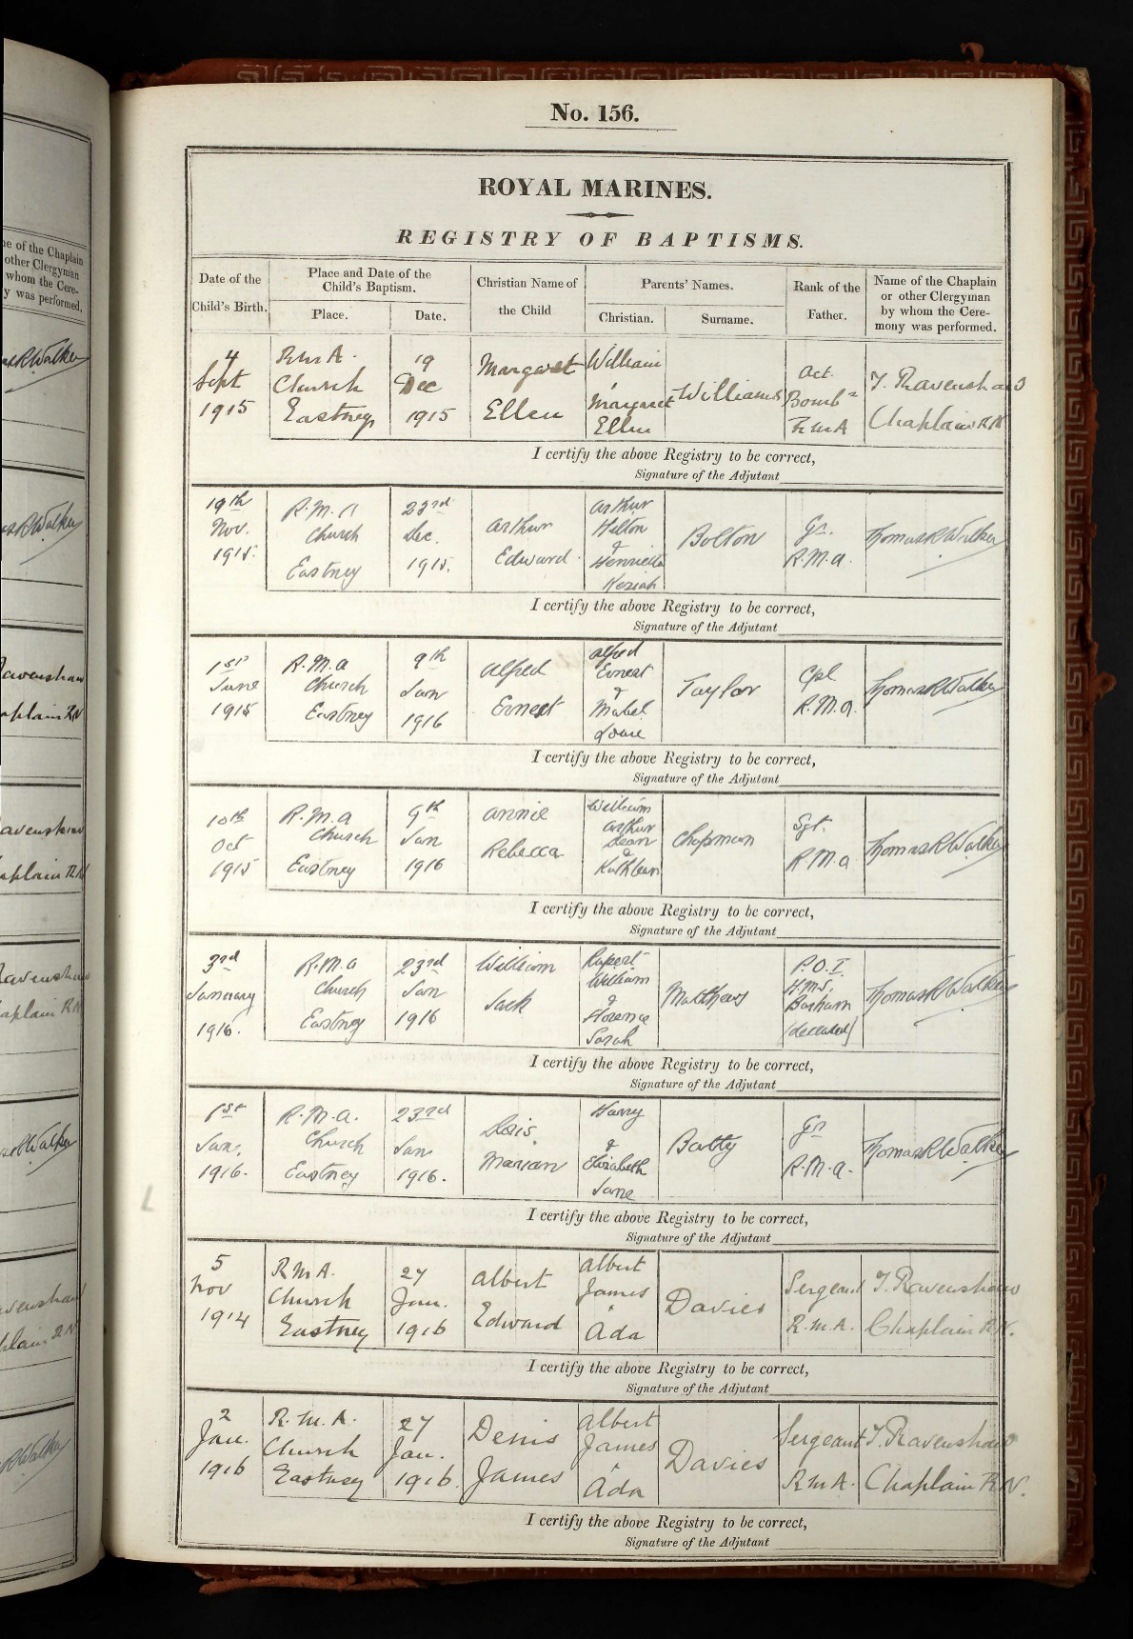 No. 156.
ROYAL MARINES.
REGISTRY OF BAPTISMS.
Date of the Child's Birth.
Place and Date of the Child's Baptism.
Place.
Date.
Christian Name of the Child
Parents' Names.
Christian.
Surname.
Rank of the Father.
Name of the Chaplain or other Clergyman by whom the Ceremony was performed.
4 Sept 1915
R.M.A. Church Eastney
19 Dec 1915
Margaret Ellen
William , Margaret Ellen
Williams
Act. Bombr R.M.A
T. Ravenshaw Chaplain R.N
I certify the above Registry to be correct,
Signature of the Adjutant
19th Nov. 1915.
R.M.A Church Eastney
23rd Dec. 1915.
Arthur Edward.
Arthur Hilton & Henrietta Keziah
Bolton
Gr. R.M.A.
Thomas R Walker
I certify the above Registry to be correct,
Signature of the Adjutant
1st June 1915
R.M.A Church Eastney
9th Jan 1916
Alfred Ernest
Alfred Ernest & Mabel
Taylor
Cpl R.M.A.
Thomas R Walker
I certify the above Registry to be correct,
Signature of the Adjutant
10th Oct 1915
R.M.A Church Eastney
9th Jan 1916
Annie Rebecca
William Arthur & Kathleen
Chapman
Sgt. R.M.A
Thomas R Walker
I certify the above Registry to be correct,
Signature of the Adjutant
3rd January 1916.
R.M.A Church Eastney
23rd Jan 1916
William Jack
Rupert William & Florence Sarah
Matthews
P.O.I. H.M.S. (deceased)
Thomas R Walker
I certify the above Registry to be correct,
Signature of the Adjutant
1st Jan. 1916.
R.M.A. Church Eastney
23rd Jan 1916.
Lois Marian
Harry & Elizabeth Jane
Batty
Gr R.M.A.
Thomas R Walker
I certify the above Registry to be correct,
Signature of the Adjutant
5 Nov 1914
R.M.A. Church Eastney
27 Jan. 1916
Albert Edward
Albert James , Ada
Davies
Sergeant R.M.A.
T. Ravenshaw Chaplain R.N.
I certify the above Registry to be correct,
Signature of the Adjutant
2 Jan. 1916
R.M.A. Church Eastney
27 Jan. 1916.
Denis James
Albert James , Ada
Davies
Sergeant R.M.A.
T. Ravenshaw Chaplain R.N.
I certify the above Registry to be correct,
Signature of the Adjutant